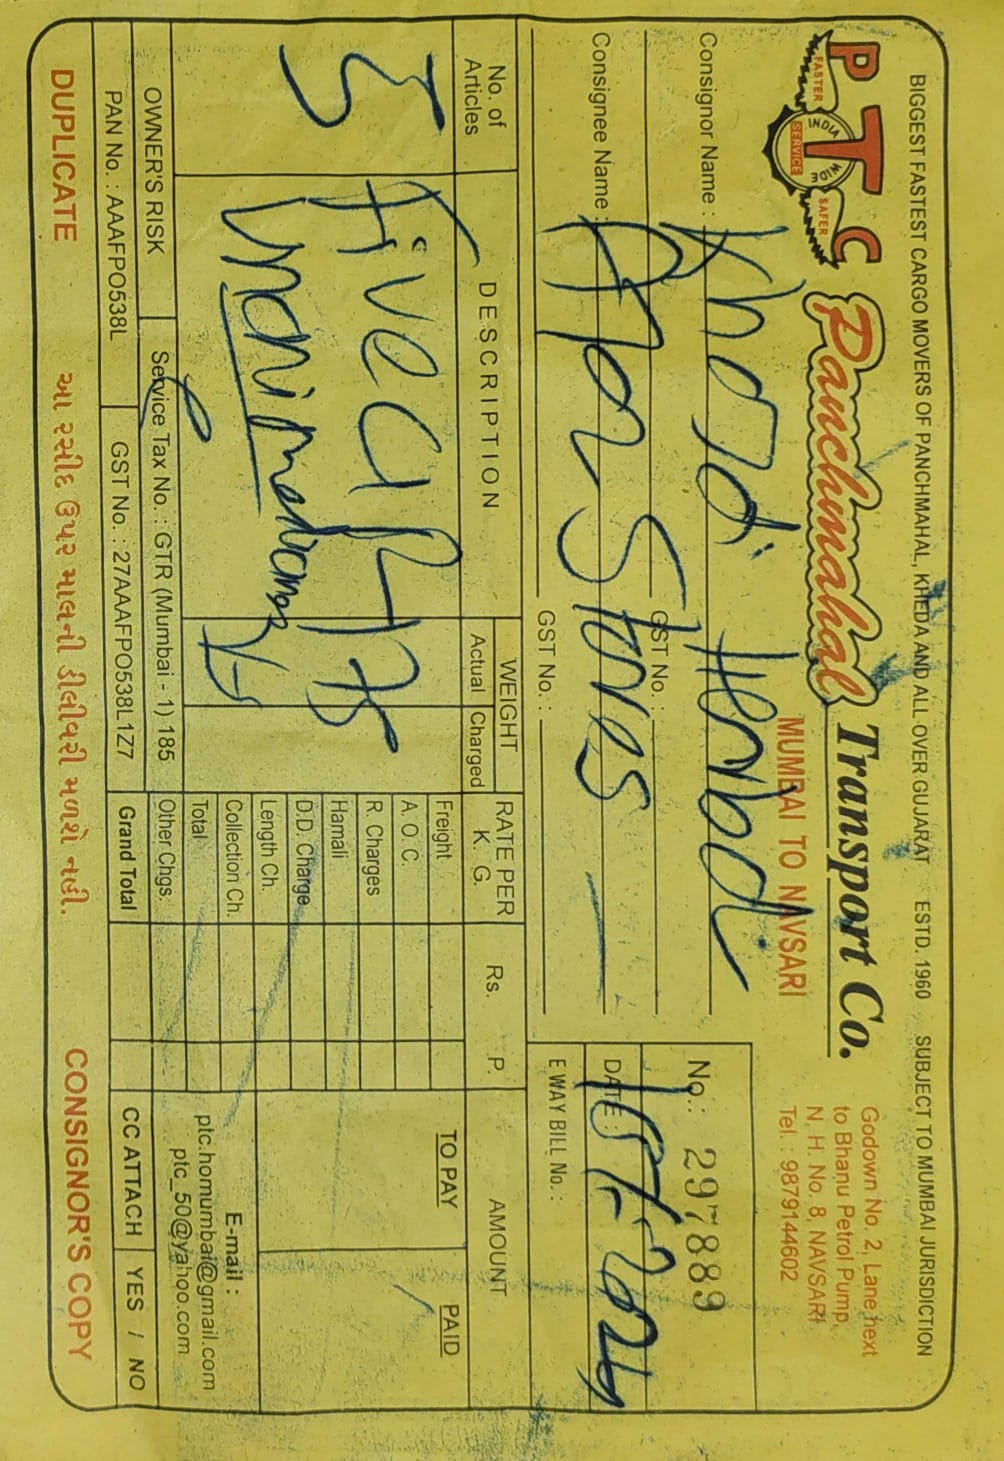 BIGGEST FASTEST CARGO MOVERS OF PANCHMAHAL, KHEDA AND ALL OVER GUJARAT ESTD. 1960 SUBJECT TO MUMBAI JURISDICTION
P T C
FASTER
SAFER
INDIA WIDE
SERVICE
Panchmahal Transport Co.
MUMBAI TO NAVSARI
Godown No. 2, Lane next
to Bhanu Petrol Pump,
N. H. No. 8, NAVSARI
Tel. : 9879144602
Consignor Name : Khodi Herbal
GST No. :
Consignee Name : Stores
GST No. :
No. : 297889
DATE :
E WAY BILL No. :
No. of Articles
DESCRIPTION
WEIGHT
Actual
Charged
RATE PER K. G.
Rs.
P.
AMOUNT
TO PAY
PAID
5
Five
Freight
A. O. C.
R. Charges
Hamali
D.D. Charge
Length Ch.
Collection Ch.
Total
Other Chgs.
Grand Total
E-mail :
ptc.homumbai@gmail.com
ptc_50@yahoo.com
OWNER'S RISK
Service Tax No. : GTR (Mumbai - 1) 185
PAN No. : AAAFPO538L
GST No. : 27AAAFPO538L1Z7
CC ATTACH YES / NO
DUPLICATE
આ રસીદ ઉપર માલની ડીલીવરી મળશે નહી.
CONSIGNOR'S COPY